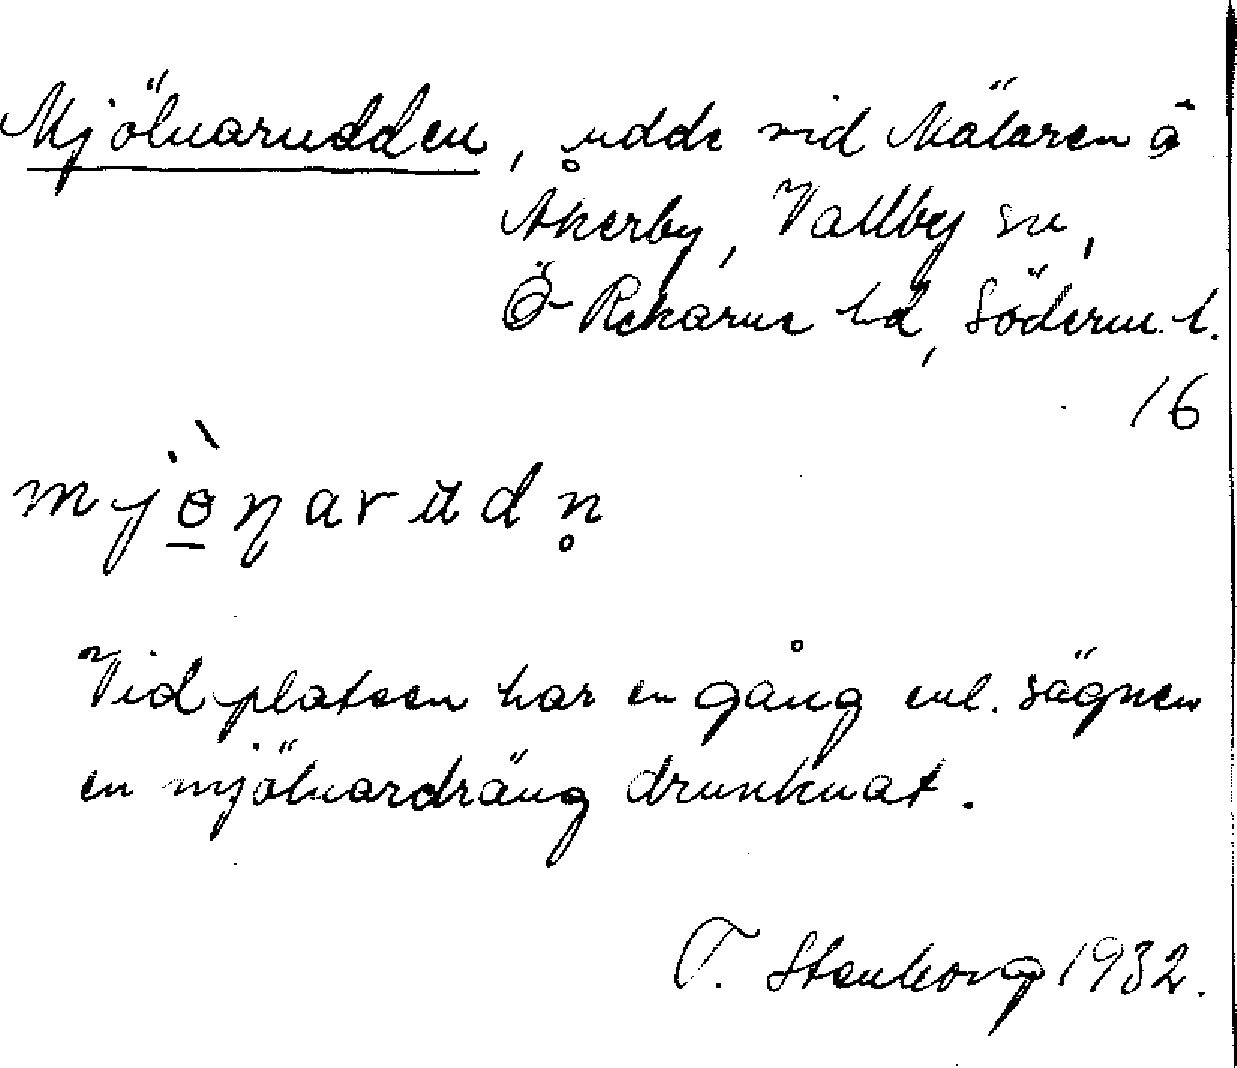 Mjölnarudden, udde vid Mälaren å
Åkerby, Vallby sn,
Ö Rekarne hd, Söderm. l.
16
Vid platsen har en gång enl. sägnen
en mjölnardräng drunknat.
T. Stenborg 1932.